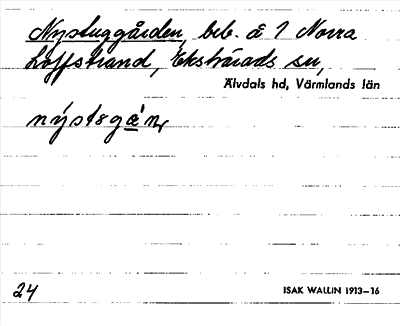 Nystuggården, beb. å 1 Norra
Loffstrand, Ekshärads sn,
Älvdals hd, Värmlands län
nýstsgà'n,
24
ISAK WALLIN 1913–16